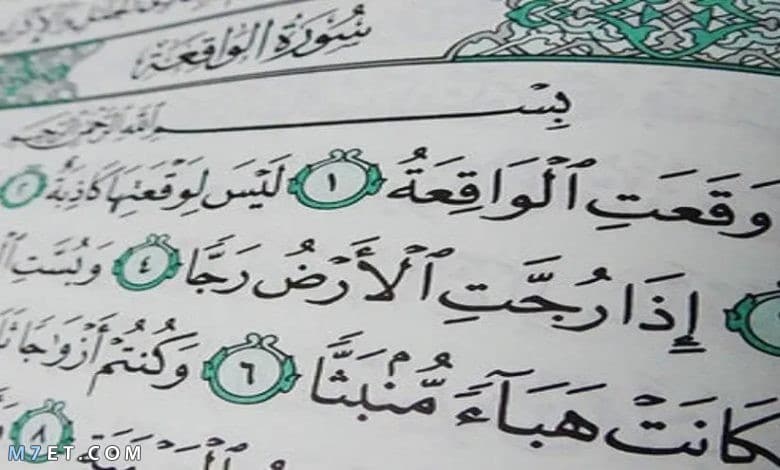 سُورَةُ الوَاقِعَةِ
بِسْمِ اللَّهِ الرَّحْمَنِ الرَّحِيمِ
وَقَعَتِ ٱلْوَاقِعَةُ ١ لَيْسَ لِوَقْعَتِهَا كَاذِبَةٌ ٢
إِذَا رُجَّتِ ٱلْأَرْضُ رَجًّا ٤ وَبُسَّتِ
كَانَتْ هَبَآءً مُّنۢبَثًّا ٦ وَكُنتُمْ أَزْوَاجًا
٨
M7ET.COM